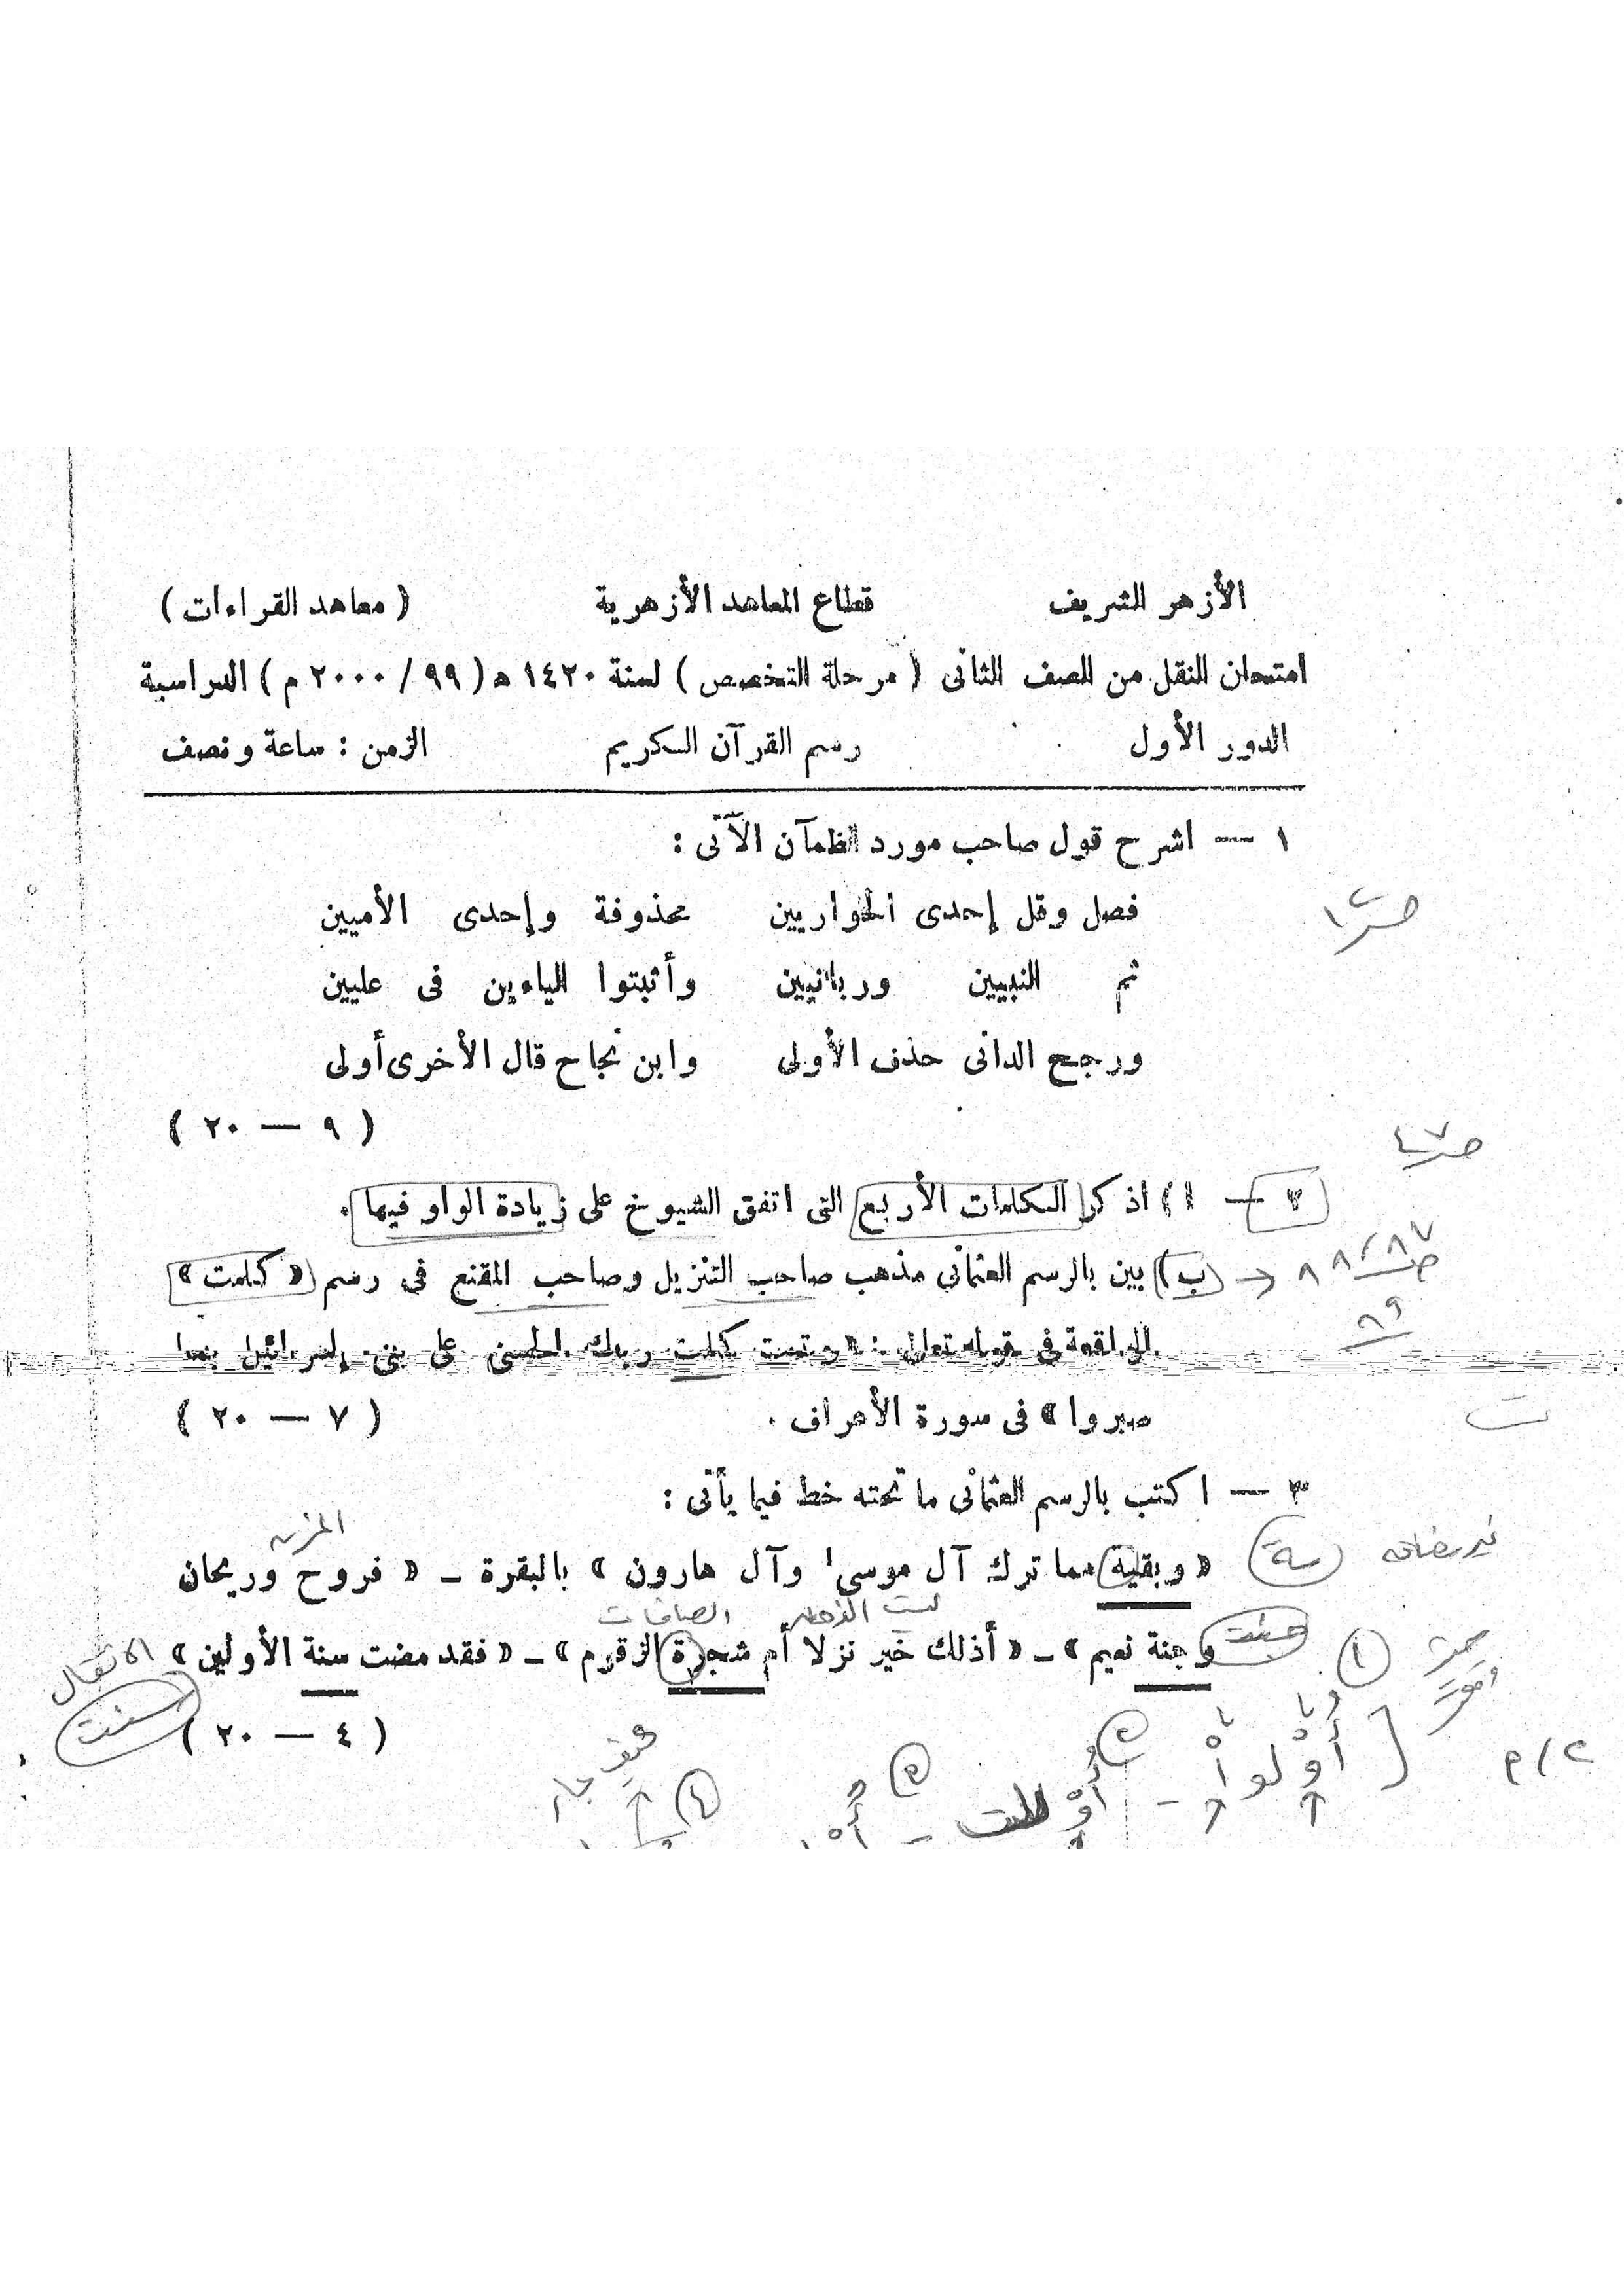 الأزهر الشريف قطاع المعاهد الأزهرية ( معاهد القراءات )
امتحان النقل من الصف الثانى ( مرحلة التخصص ) لسنة ١٤٢٠ هـ ( ٩٩ / ٢٠٠٠ م ) الدراسية
الدور الأول رسم القرآن الكريم الزمن : ساعة ونصف
١ — اشرح قول صاحب مورد الظمآن الآتى :
فصل وقل إحدى الحواريين محذوفة وإحدى الأميين
ثم النبيين وربانيين وأثبتوا الياءين فى عليين
ورجح الدانى حذف الأولى وابن نجاح قال الأخرى أولى
( ٩ — ٢٠ )
٢ — ا) اذكر الكلمات الأربع التى اتفق الشيوخ على زيادة الواو فيها .
ب) بين بالرسم العثمانى مذهب صاحب التنزيل وصاحب المقنع فى رسم « كلمت »
الواقعة فى قوله تعالى : « وتمت كلمت ربك الحسنى على بنى إسرائيل بما
صبروا » فى سورة الأعراف .
( ٧ — ٢٠ )
٣ — اكتب بالرسم العثمانى ما تحته خط فيما يأتى :
« وبقية مما ترك آل موسى وآل هارون » بالبقرة – « فروح وريحان
وجنة نعيم » – « أذلك خير نزلا أم شجرة الزقوم » – « فقد مضت سنة الأولين »
( ٤ — ٢٠ )
ص ٤٧
ص ٨٧
٨٨
٨٩
ت
غير مضافه
جنت
الصافات
الانفال
سنت
٢ / م